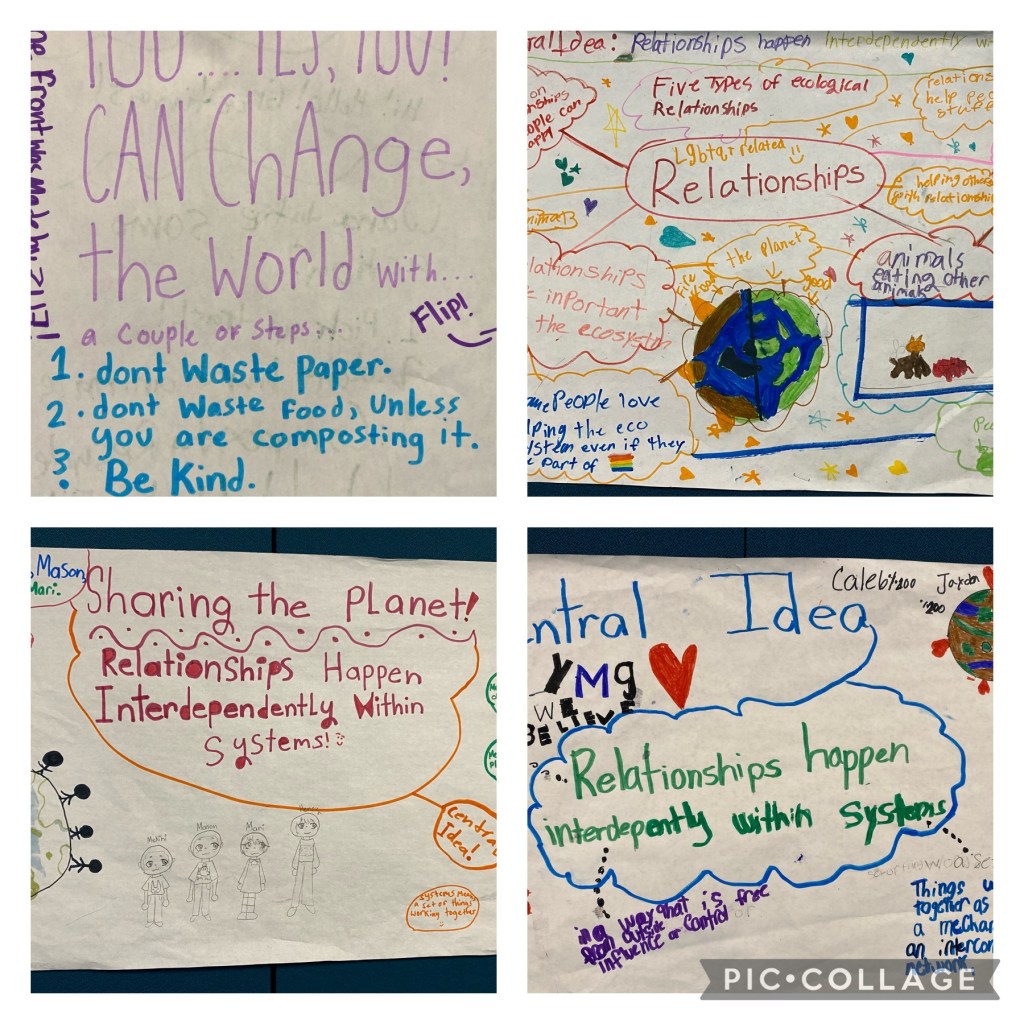 YOU....YES, YOU!
CAN ChAnge,
the World with...
a couple of steps...
Flip!
1. dont Waste paper.
2. dont Waste Food, unless
you are composting it.
3. Be Kind.
the Front was made by
Idea: Relationships happen Interdependently
Five Types of ecological
Relationships
relations
help
stuff
on
people can
happy
Lgbtq+ related
Relationships
helping others
with relationship
the planet
Fire
good
important
the ecosystem
animals
eating other
animals
People love
the eco
system even if they
part of
Mason,
Mari.
Sharing the PLanet!
Relationships Happen
Interdependently Within
Systems!
Central
Idea!
Mason
Mari
systems means
a set of things
working together
Central Idea
Caleb %200
Jaxdon
%200
YMg
WE
BELIEVE
Relationships happen
interdepently within systems
in a way that is free
from outside
influence or control
Things
together as
a mechan
an intercon
network.
PIC•COLLAGE